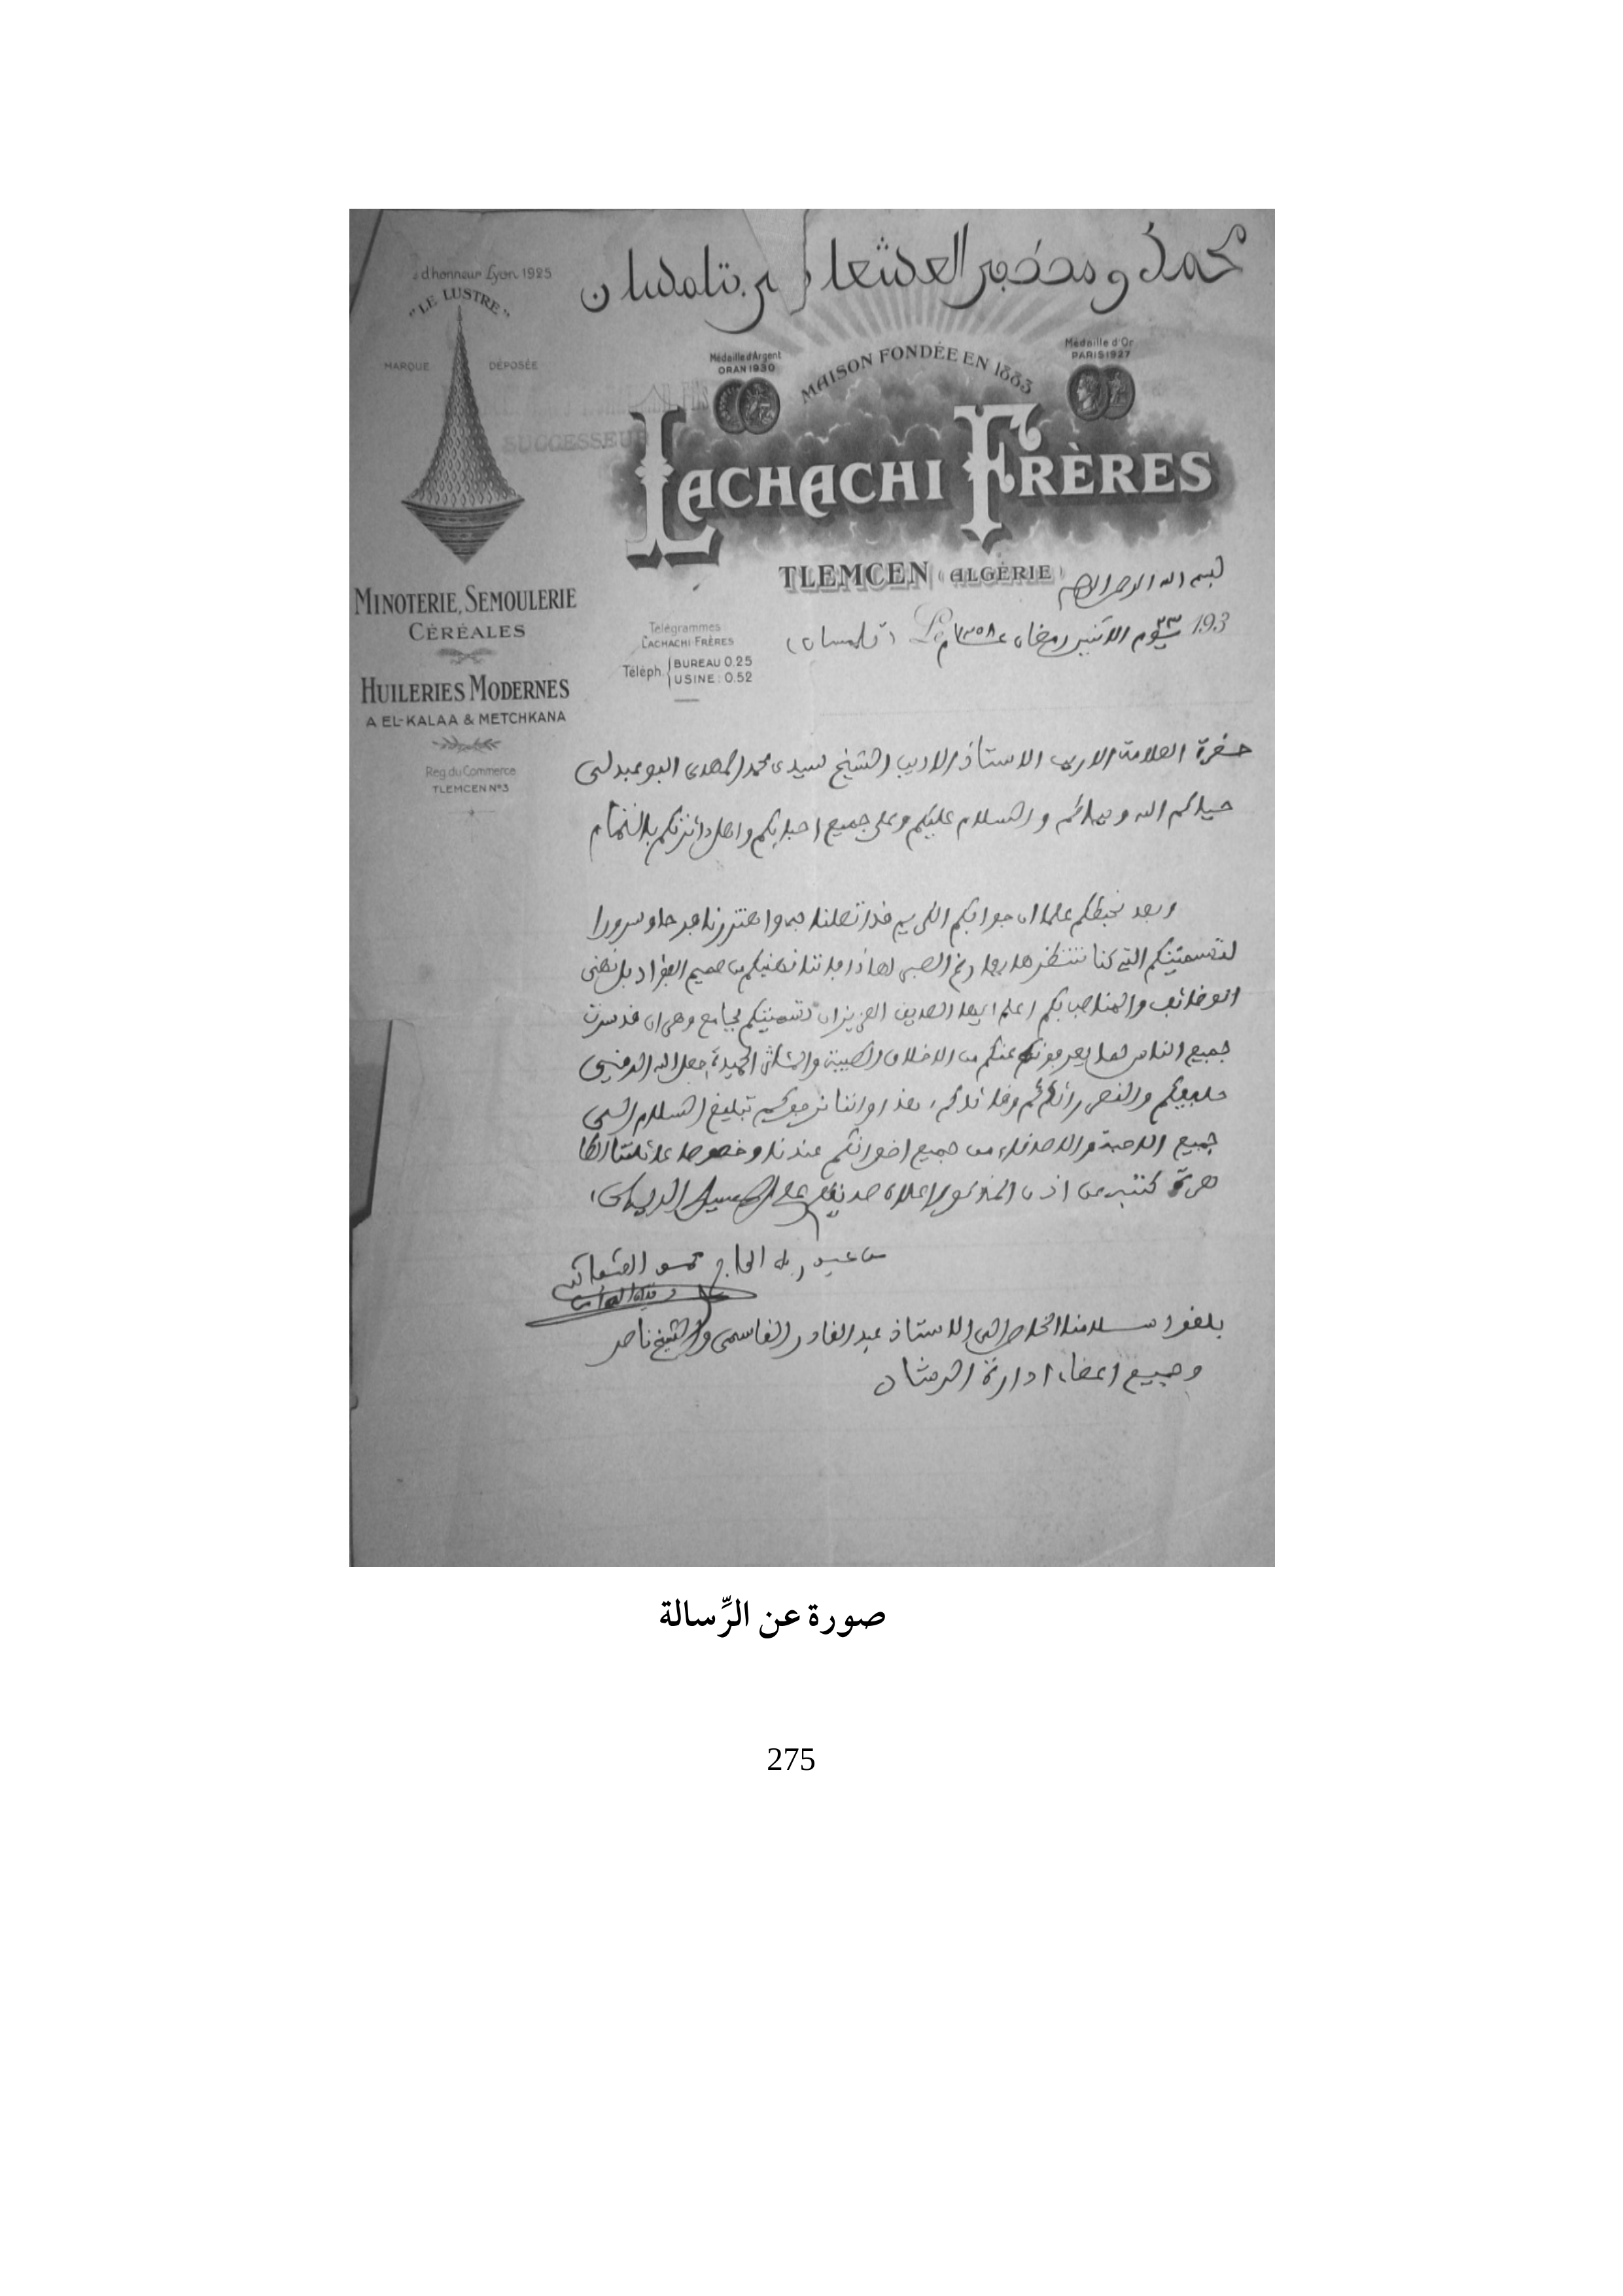 محمد و مصطفى العشعاشي بتلمسان
d'honneur Lyon 1925
"LE LUSTRE"
MARQUE DÉPOSÉE
Médaille d'Argent
ORAN 1930
MAISON FONDÉE EN 1883
Médaille d'Or
PARIS 1927
SUCCESSEUR
LACHACHI FRÈRES
TLEMCEN (ALGÉRIE)
MINOTERIE, SEMOULERIE
CÉRÉALES
HUILERIES MODERNES
A EL-KALAA & METCHKANA
Reg du Commerce
TLEMCEN N°3
Télégrammes
LACHACHI FRÈRES
Téléph. BUREAU 0.25
USINE : 0.52
بسم الله الرحمن الرحيم
يوم الاثنين ٢٣ رمضان عام ١٣٥٨ (تلمسان) Le 193
حضرة العلامة الاستاذ الاديب الشيخ سيدى محمد المهدى البوعبدلى
حياكم الله و والسلام عليكم وعلى جميع احبابكم واهل دائرتكم بالتمام
وبعد نحيطكم علما ان جوابكم الكريم قد اتصلنا به واهتززنا فرحا وسرورا
لتسميتكم التى كنا ننتظرها الصبر لهاذا فاننا نهنيكم من صميم الفؤاد بل نهنى
الوظائف والمناصب بكم اعلم ايها الصديق العزيز ان تسميتكم بجامع وهران قد سرت
جميع الناس لما يعرفونه عنكم من الاخلاق الطيبة والشمائل الحميدة جعل الله التوفيق
حليفكم والنصر رائدكم وقائدكم، هذا واننا نرجوكم تبليغ السلام الى
جميع الاحبة والاصدقاء من جميع اخوانكم عندنا وخصوصا عائلتنا الطا
هرة كتب عن اذن المذكور اعلاه صديقكم
من عبيد ربه الحاج محمد العشعاشى
بلغوا سلامنا الخاص الى الاستاذ عبد القادر القاسمى والشيخ ناصر
وجميع اعضاء ادارة الرشاد
صورة عن الرِّسالة
275